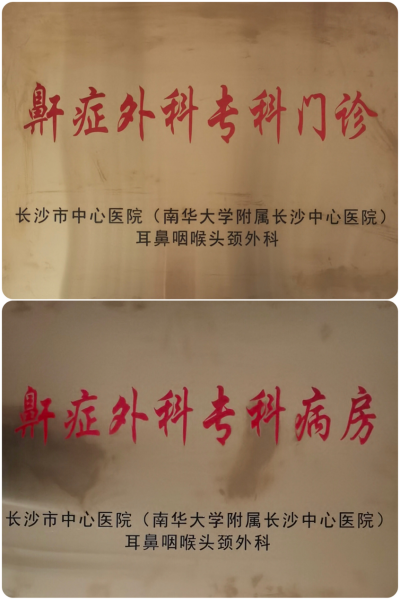 鼾症外科专科门诊
长沙市中心医院（南华大学附属长沙中心医院）
耳鼻咽喉头颈外科
鼾症外科专科病房
长沙市中心医院（南华大学附属长沙中心医院）
耳鼻咽喉头颈外科